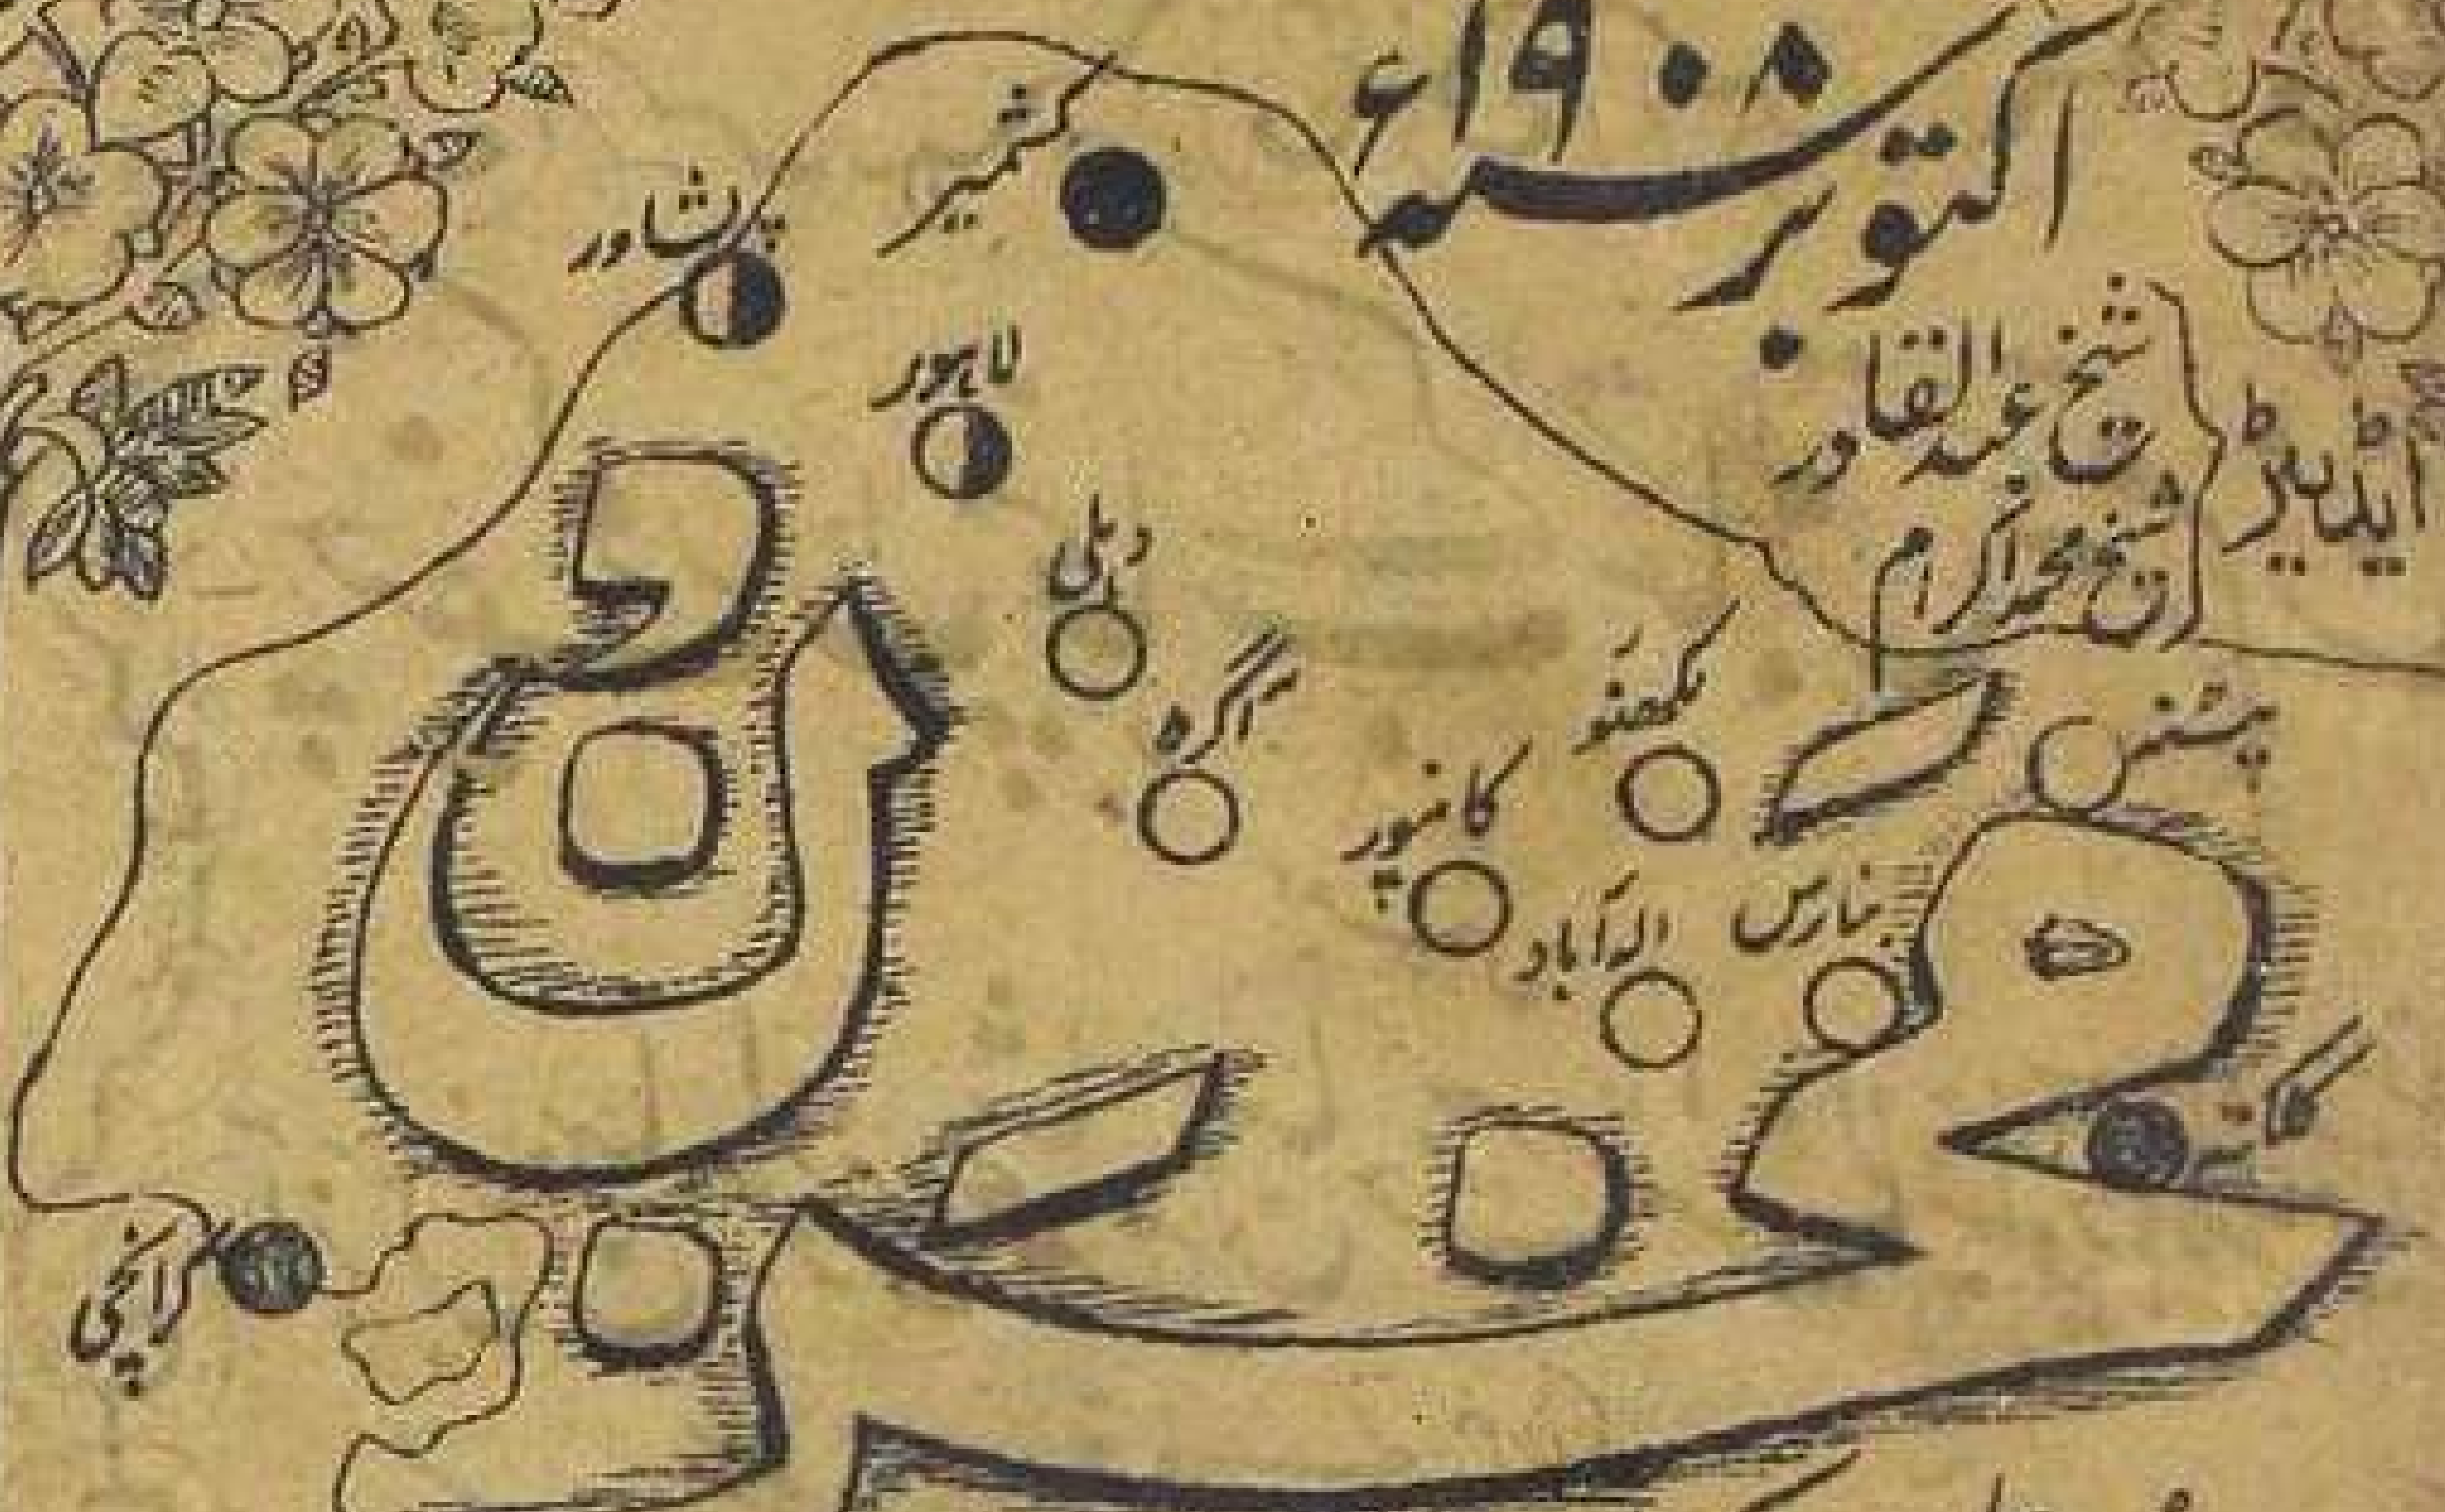 اکتوبر سنہ ۱۹۰۸ء
ایڈیٹر
شیخ عبدالقادر
شیخ محمد اکرام
کشمیر
پشاور
لاہور
دہلی
آگرہ
لکھنؤ
کانپور
پٹنہ
بنارس
الہ آباد
کراچی
مخزن